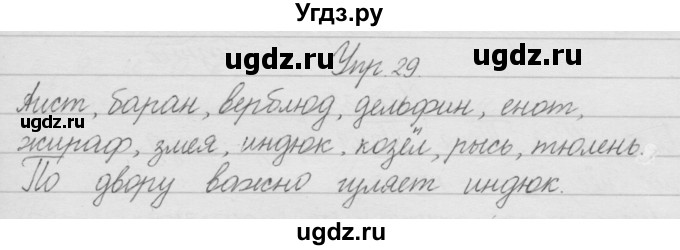 Угдз.ру
ugdz.ru ugdz.ru
Упр. 29.
Аист, баран, верблюд, дельфин, енот,
ugdz.ru
жираф, змея, индюк, козёл, рысь, тюлень.
По двору важно гуляет индюк.
ugdz.ru ugdz.ru